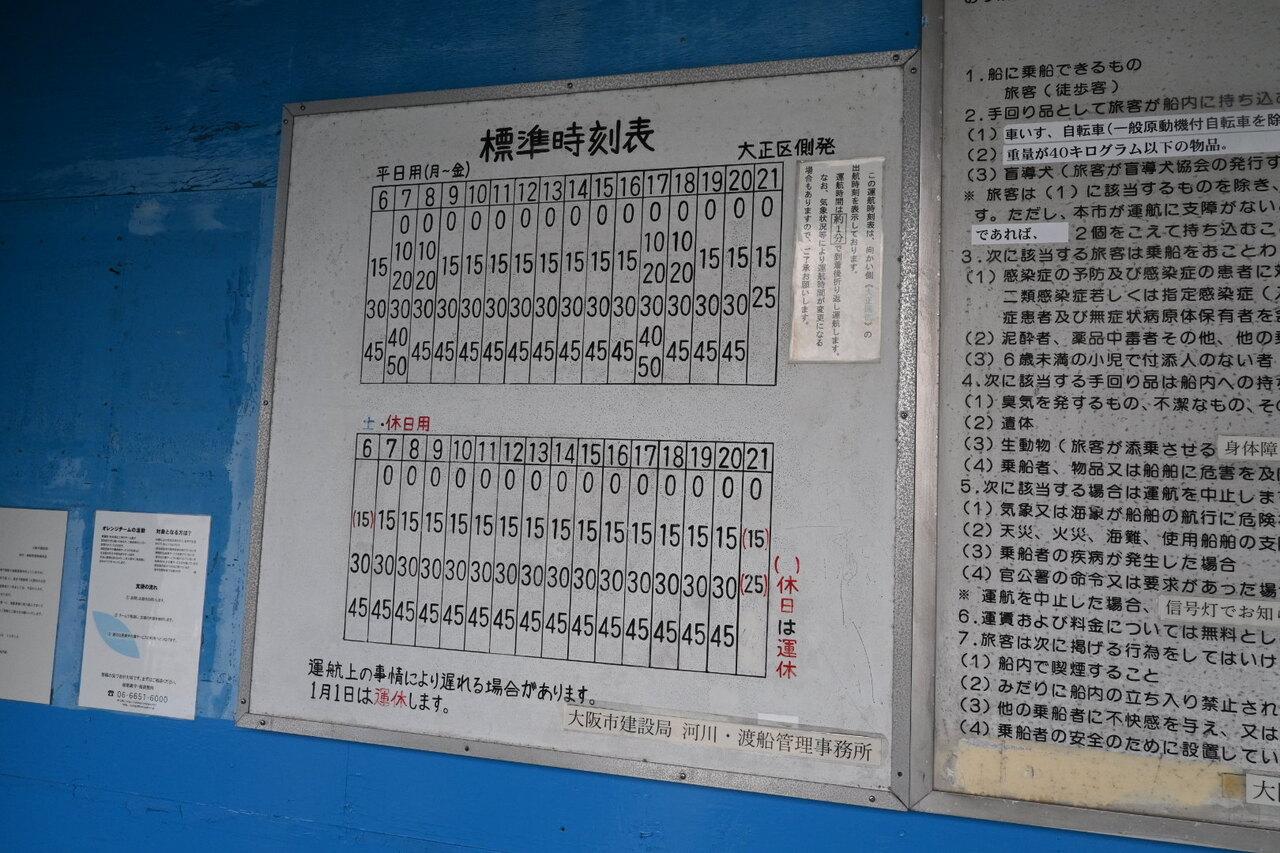 標準時刻表
大正区側発
平日用(月~金)
6 7 8 9 10 11 12 13 14 15 16 17 18 19 20 21
0 0 0 0 0 0 0 0 0 0 0 0 0 0 0
10 10 10 10
15 15 15 15 15 15 15 15 15 15 15 15 15
20 20 20 20 25
30 30 30 30 30 30 30 30 30 30 30 30 30 30 30
40 40
45 45 45 45 45 45 45 45 45 45 45 45 45
50 50
この運航時刻表は、向かい側の
出航時刻を表示しております。
運航時間は約1分で到着後折り返し運航します。
なお、気象状況等により運航時間が変更になる
場合もありますので、ご了承お願いします。
土・休日用
6 7 8 9 10 11 12 13 14 15 16 17 18 19 20 21
0 0 0 0 0 0 0 0 0 0 0 0 0 0 0
(15) 15 15 15 15 15 15 15 15 15 15 15 15 15 15 (15)
30 30 30 30 30 30 30 30 30 30 30 30 30 30 30 (25)
45 45 45 45 45 45 45 45 45 45 45 45 45 45 45
( )休日は運休
運航上の事情により遅れる場合があります。
1月1日は運休します。
大阪市建設局 河川・渡船管理事務所
1.船に乗船できるもの
旅客(徒歩客)
2.手回り品として旅客が船内に持ち込
(1)車いす、自転車(一般原動機付自転車を除
(2)重量が40キログラム以下の物品。
(3)盲導犬(旅客が盲導犬協会の発行す
※ 旅客は(1)に該当するものを除き、
す。ただし、本市が運航に支障がない
であれば、 2個をこえて持ち込むこ
3.次に該当する旅客は乗船をおことわ
(1)感染症の予防及び感染症の患者に
二類感染症若しくは指定感染症(
症患者及び無症状病原体保有者を
(2)泥酔者、薬品中毒者その他、他の
(3)6歳未満の小児で付添人のない者
4.次に該当する手回り品は船内への持
(1)臭気を発するもの、不潔なもの、そ
(2)遺体
(3)生動物(旅客が添乗させる 身体障
(4)乗船者、物品又は船舶に危害を及
5.次に該当する場合は運航を中止しま
(1)気象又は海象が船舶の航行に危険
(2)天災、火災、海難、使用船舶の支
(3)乗船者の疾病が発生した場合
(4)官公署の命令又は要求があった場
※ 運航を中止した場合、信号灯でお知
6.運賃および料金については無料とし
7.旅客は次に掲げる行為をしてはいけ
(1)船内で喫煙すること
(2)みだりに船内の立ち入り禁止され
(3)他の乗船者に不快感を与え、又は
(4)乗船者の安全のために設置してい
大
オレンジチームの活動
対象となる方は?
支援の流れ
☎ 06-6651-6000